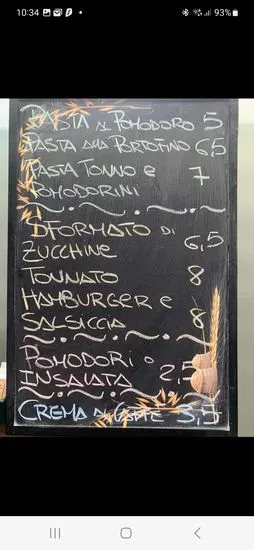 10:34
93%
PASTA AL POMODORO 5
PASTA ALLA PORTOFINO 6,5
PASTA TONNO e
POMODORINI 7
SFORMATO DI
ZUCCHINE 6,5
TONNATO 8
HAMBURGER e
SALSICCIA 8
POMODORI o
INSALATA 2,5
CREMA AL CAFFÈ 3,5